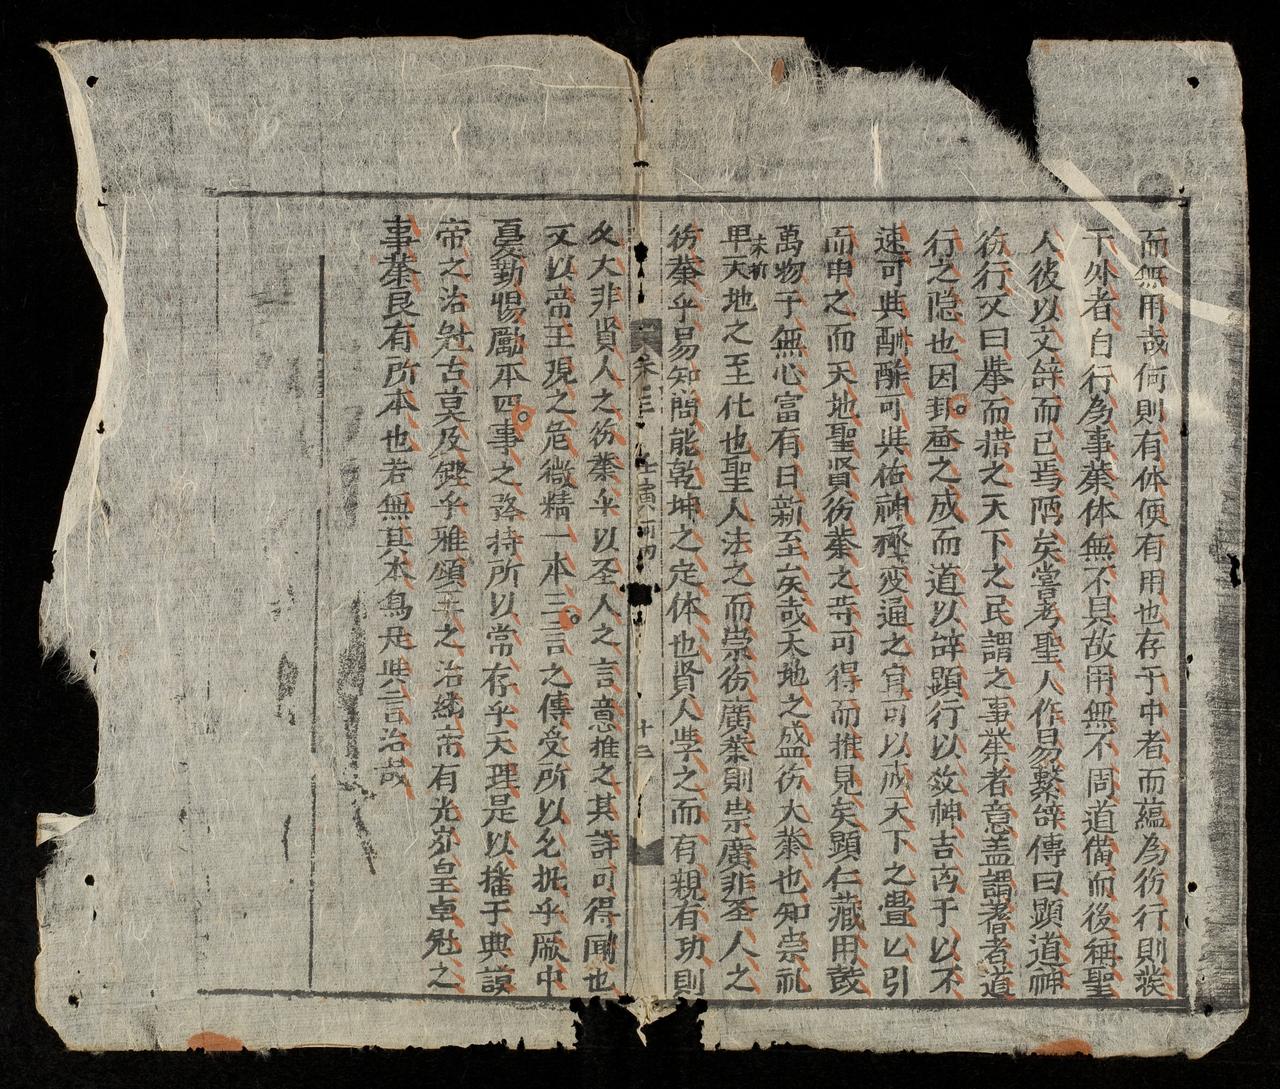 而無用哉何則有体便有用也存于中者而蘊為彷行則發
于外者自行為事業体無不具故用無不周道備而後稱聖
人彼以文辞而已焉陋矣嘗考聖人作易繫辞傳曰顕道神
彷行又曰擧而措之天下之民謂之事業者意盖謂著者道
行之隐也因卦畫之成而道以辞顕行以效神吉凶于以不
速可與酬酢可與佑神極変通之宜可以成天下之亹以引
而申之而天地聖贤彷業之等可得而推見矣顕仁藏用鼓
萬物于無心富有日新至矣哉天地之盛彷大業也知崇礼
卑天地之至化也聖人法之而崇彷廣業則崇廣非圣人之
未析
彷業乎易知簡能乾坤之定体也贤人学之而有親有功則
久大非贤人之彷業乎以圣人之言意推之其詳可得聞也
又以帝王現之危微精一本三言之傳受所以允執乎厥中
憂勤惕勵本四事之降持所以常存乎天理是以播于典謨
帝之治尅古莫及鏗乎雅頌王之治綿帝有光岁皇卓尅之
事業良有所本也若無其本烏足與言治哉
卷三 壬寅 丙 十三